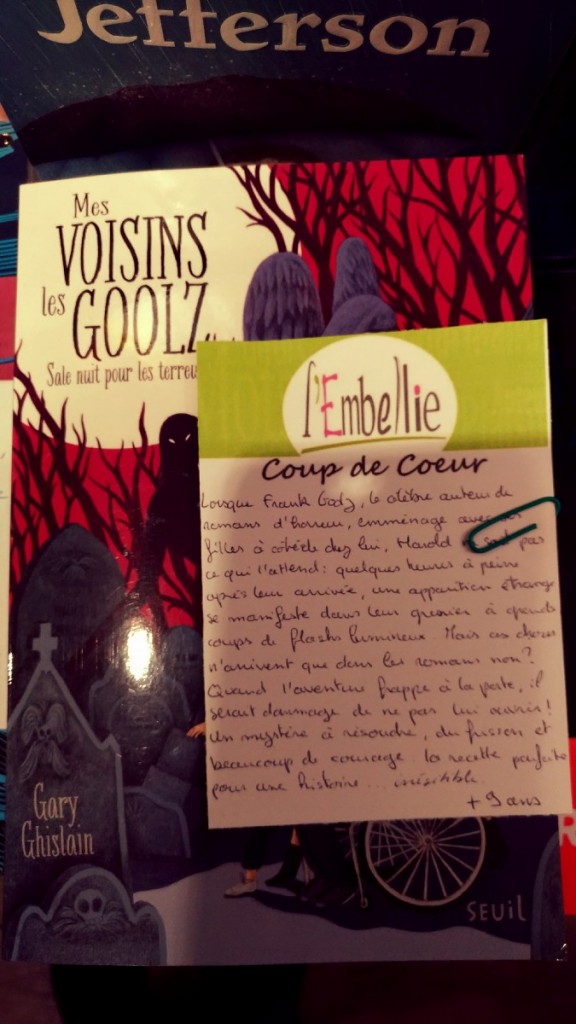 Jefferson
Mes
VOISINS
les
GOOLZ
Sale nuit pour les
l'Embellie
Coup de Coeur
Lorsque Frank Goolz, le célèbre auteur de
romans d'horreur, emménage avec ses
filles à côté de chez lui, Harold ne sait pas
ce qui l'attend : quelques heures à peine
après leur arrivée, une apparition étrange
se manifeste dans leur grenier à grands
coups de flashs lumineux. Mais ces choses
n'arrivent que dans les romans non ?
Quand l'aventure frappe à la porte, il
serait dommage de ne pas lui ouvrir !
Un mystère à résoudre, du frisson et
beaucoup de courage. la recette parfaite
pour une histoire... irrésistible.
+ 9 ans
Gary
Ghislain
SEUIL